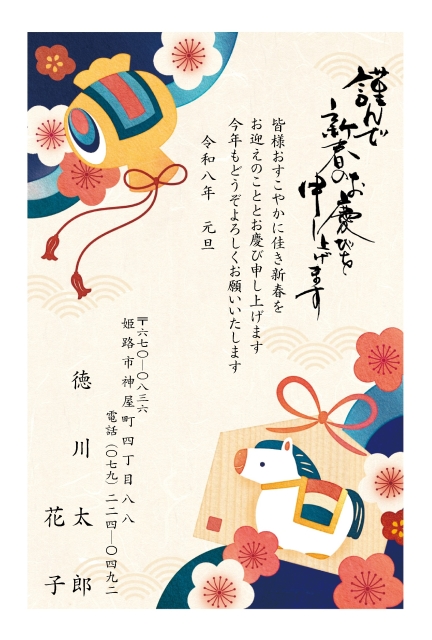 謹んで
新春のお慶びを
申し上げます
皆様おすこやかに佳き新春を
お迎えのこととお慶び申し上げます
今年もどうぞよろしくお願いいたします
令和八年　元旦
〒六七〇―〇八三六
姫路市神屋町四丁目八八
電話（〇七九）二二四―〇四九二
徳川　太郎
花子